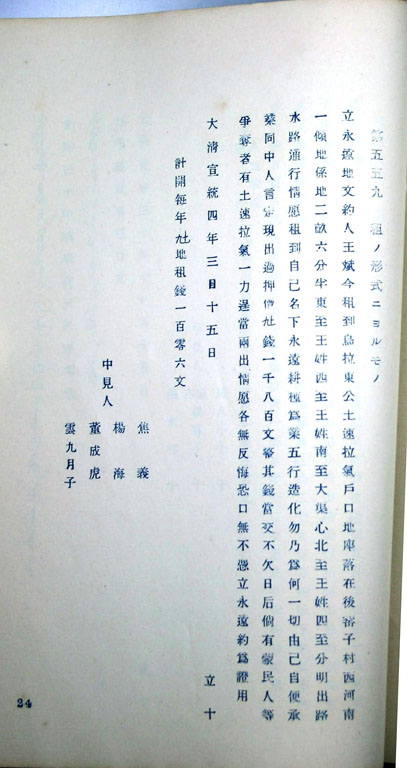 第五五九　租ノ形式ニヨルモノ
立永遠地文約人王斌今租到烏拉東公土速拉氣戶口地座落在後窰子村西河南
一傾地係地二畝六分半東至王姓西至王姓南至大渠心北至王姓四至分明出路
水路通行情愿租到自己名下永遠耕種爲業五行造化勿乃爲何一切由己自便承
業同中人言定現出過押借圤錢一千八百文整其錢當交不欠日后倘有蒙民人等
爭奪者有土速拉氣一力逞當兩出情愿各無反悔恐口無不憑立永遠約爲證用
大清宣統四年三目十五日　立十
計開每年圤地租錢一百零六文
焦義
楊海
中見人　董成虎
雲九月子
24